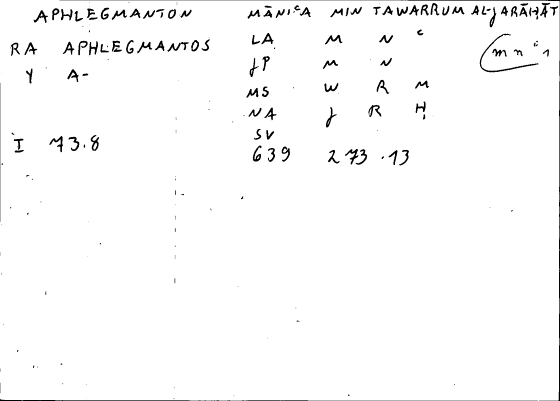 APHLEGMANTON MĀNIᶜA MIN TAWARRUM AL-JARĀḤĀT
RA APHLEGMANTOS LA M N ᶜ
Y A- JP M N
MS W R M
NA J R Ḥ
SV
I 73.8 639 273.13
mnᶜ1